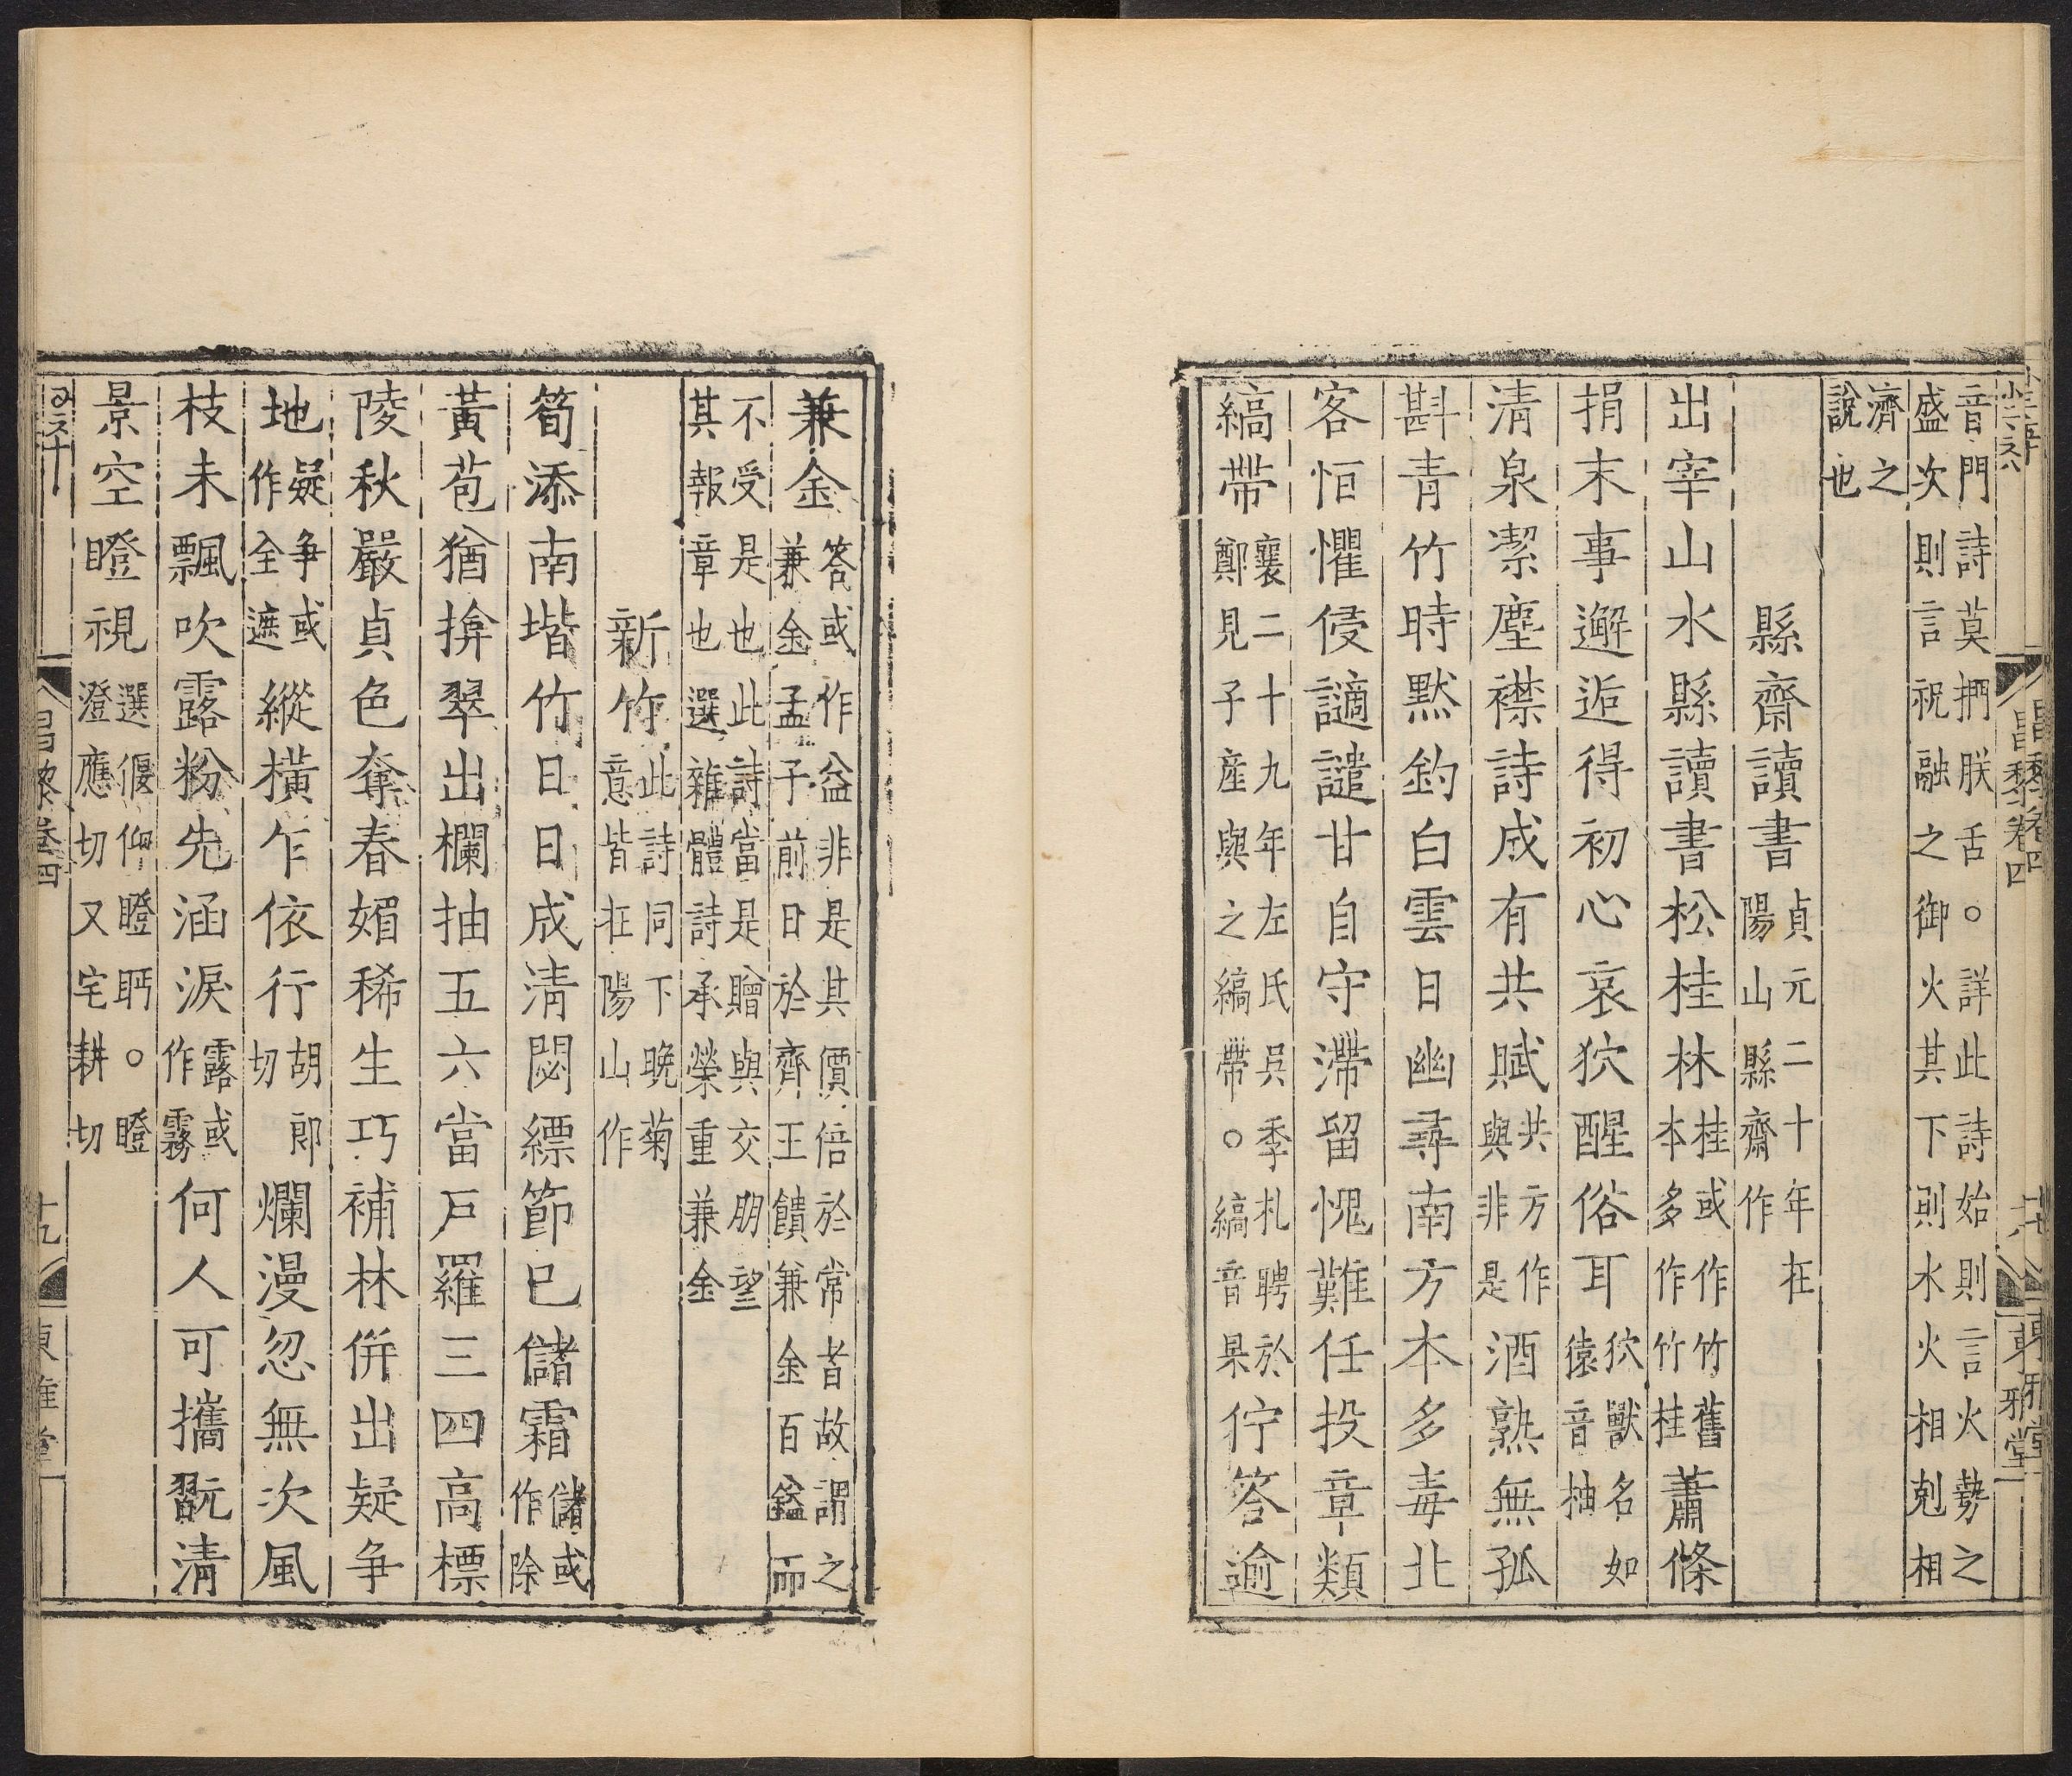 音門詩莫捫朕舌○詳此詩始則言火勢之
盛次則言祝融之御火其下則水火相剋相
濟之
說也
縣齋讀書貞元二十年在陽山縣齋作
出宰山水縣讀書松桂林桂或作竹舊本多作竹桂蕭條
捐末事邂逅得初心哀狖醒俗耳狖獸名如猿音柚
清泉潔塵襟詩成有共賦共方作與非是酒熟無孤
斟青竹時默釣白雲日幽尋南方本多毒北
客恒懼侵謫譴甘自守滯留愧難任投章類
縞帶襄二十九年左氏吳季札聘於鄭見子產與之縞帶○縞音杲佇答逾
兼金答或作益非是其價倍於常者故謂之兼金孟子前日於齊王饋兼金百鎰而
不受是也此詩當是贈與交朋望
其報章也選雜體詩承榮重兼金
新竹此詩同下晚菊意皆在陽山作
筍添南堦竹日日成清閟縹節已儲霜儲或作除
黃苞猶揜翠出欄抽五六當戶羅三四高標
陵秋嚴貞色奪春媚稀生巧補林併出疑爭
地疑爭或作全遮縱橫乍依行胡郎切爛漫忽無次風
枝未飄吹露粉先涵淚露或作霧何人可攜翫清
景空瞪視選偃仰瞪眄○瞪澄應切又宅耕切
昌黎卷四
十九
東雅堂